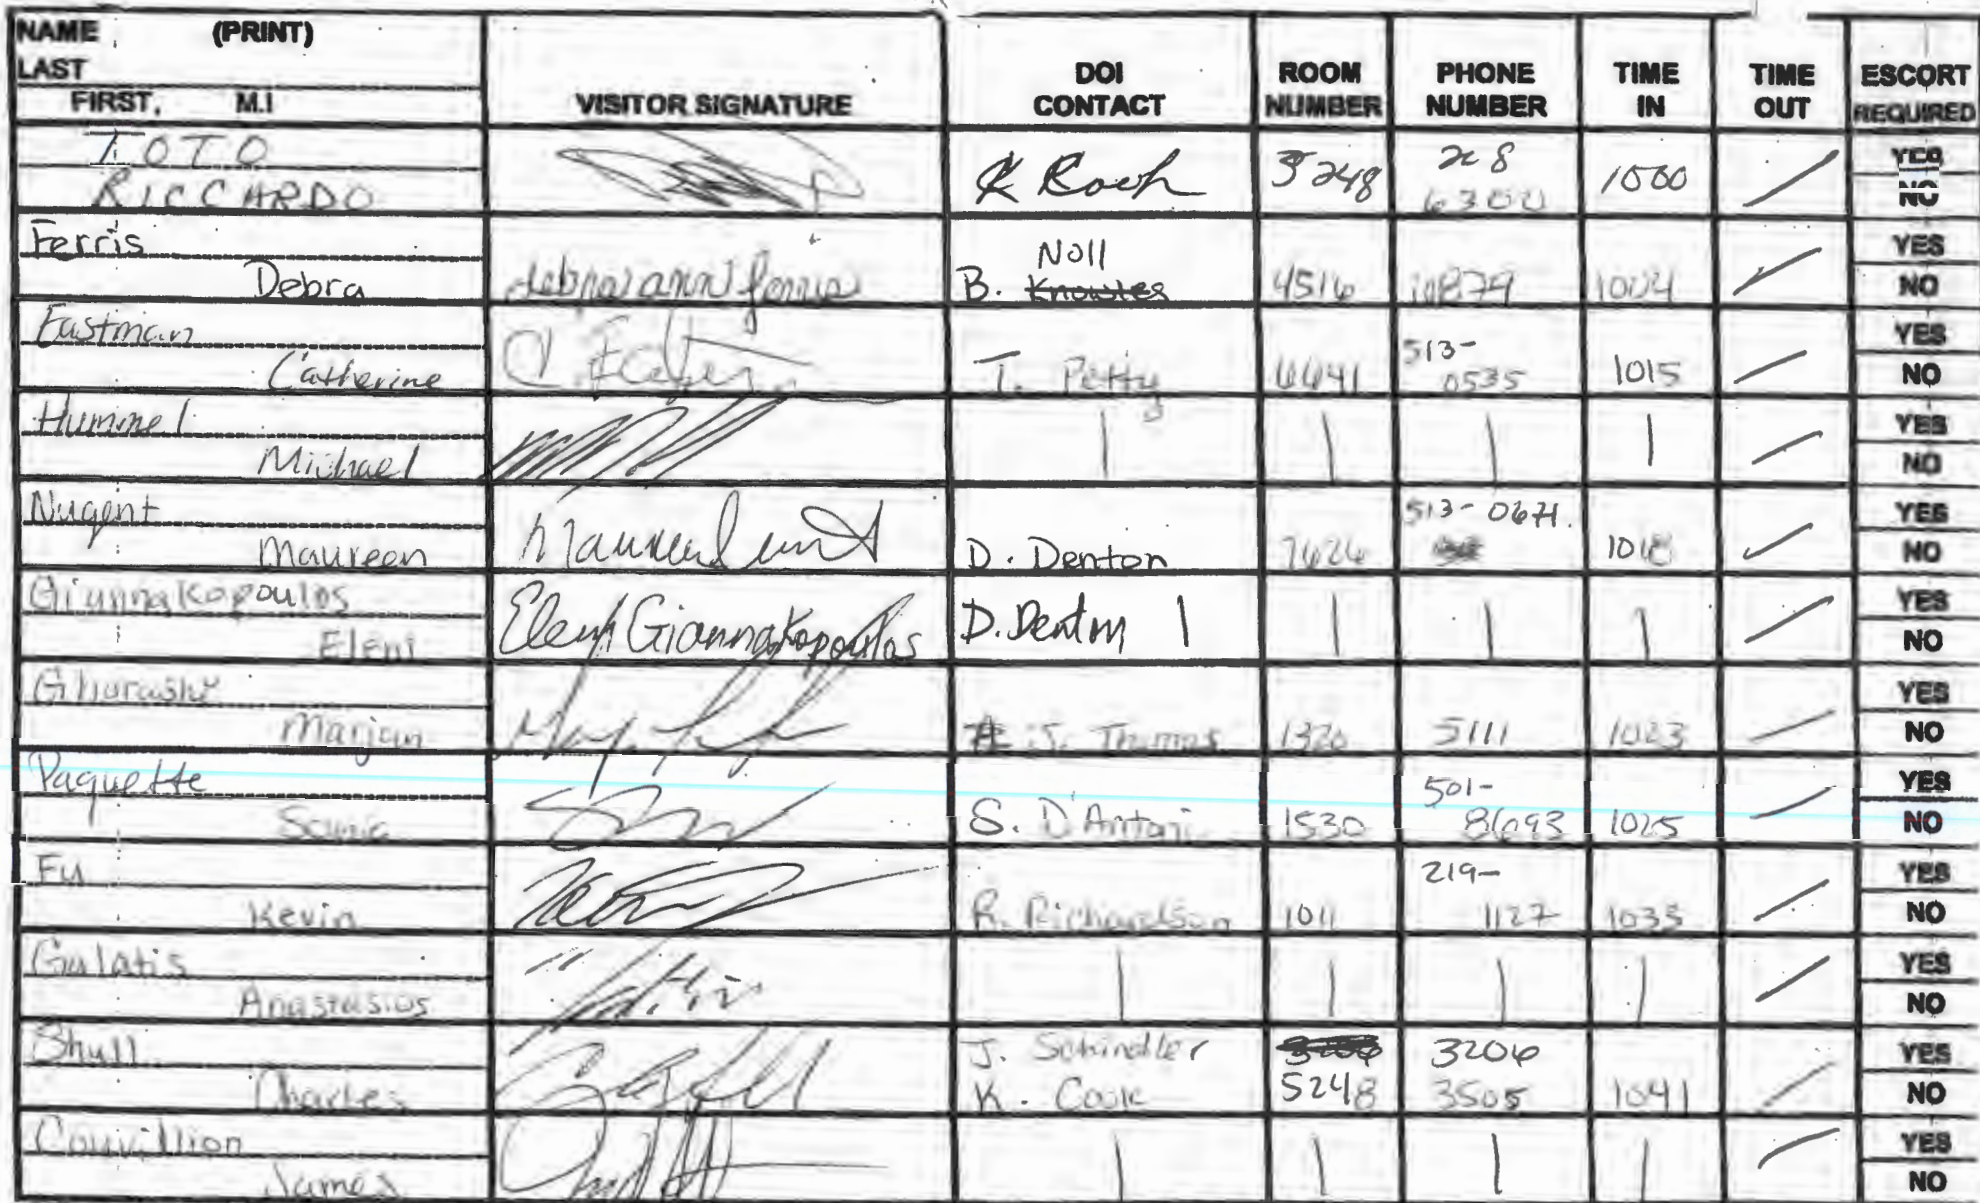 NAME (PRINT)
LAST
FIRST, M.I
VISITOR SIGNATURE
DOI CONTACT
ROOM NUMBER
PHONE NUMBER
TIME IN
TIME OUT
ESCORT REQUIRED
TOTO
RICCARDO
5248
6300
1000
YES
NO
Ferris
Debra
Noll
B. Knowles
4516
1004
YES
NO
Eastman
Catherine
C.
T. Petty
6641
513-
0535
1015
YES
NO
Hummel
Michael
YES
NO
Nugent
Maureen
D. Denton
7626
513-
1018
YES
NO
Giannakopoulos
Eleni
Eleni Giannakopoulos
D. Denton
YES
NO
Ghorashi
Marjan
J. Thomas
1320
5111
1023
YES
NO
Paquette
Sonja
S. D'Antoni
1530
501-
8693
1025
YES
NO
Fu
Kevin
R. Richardson
1011
219-
1127
1035
YES
NO
Galatis
Anastasios
YES
NO
Shull
Charles
J. Schindler
3206
K. Cook
5248
3505
1041
YES
NO
Couvillion
James
YES
NO